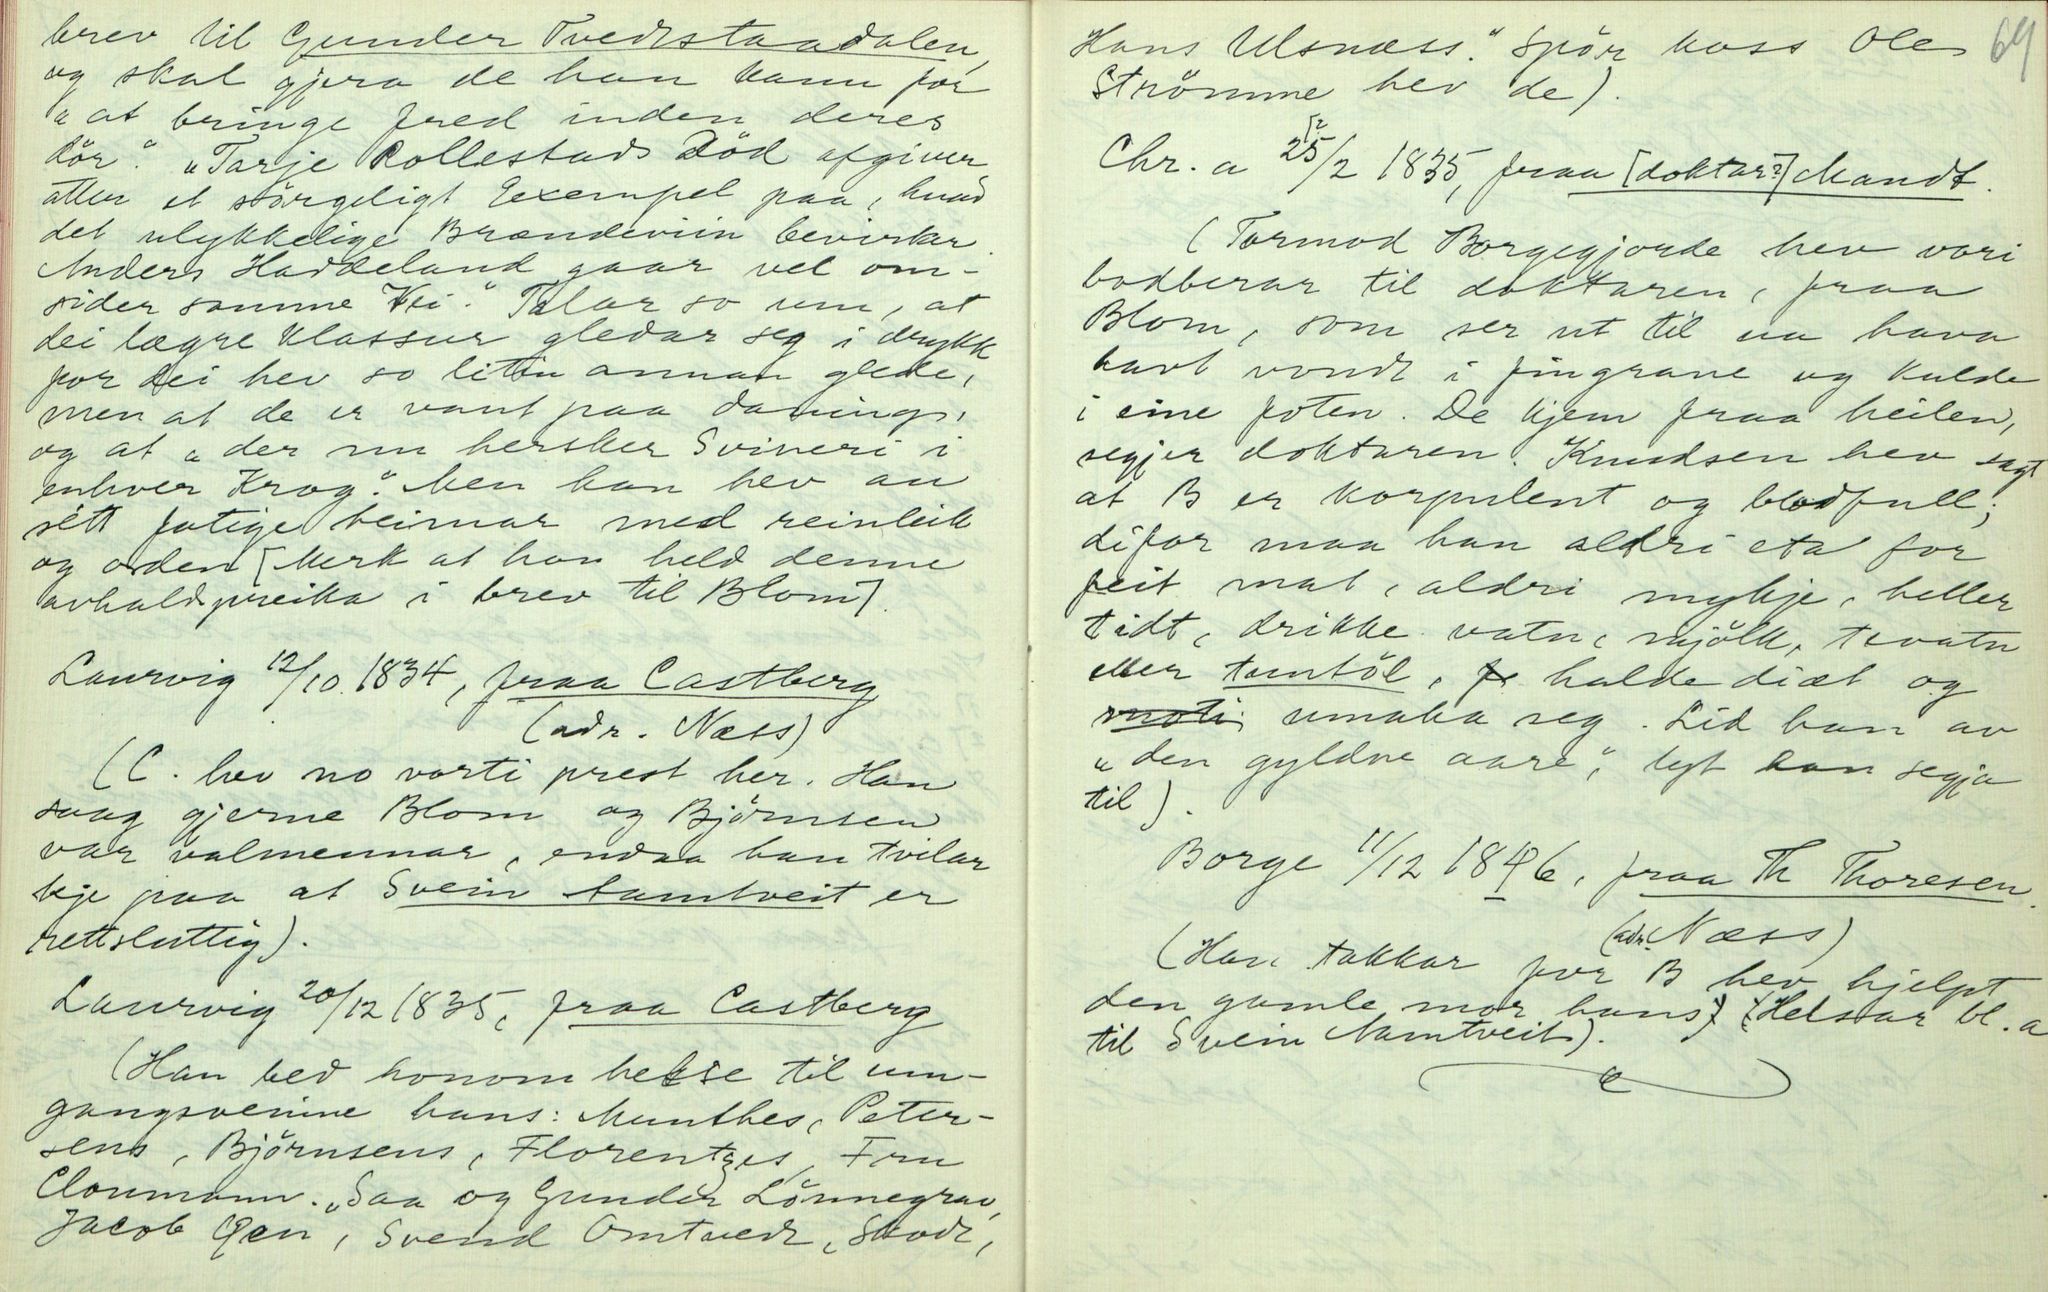 brev til Gunder Tvedtstaadalen,
og skal gjera de han kann for
"at bringe fred inden deres
Dör." "Tarje Rollestads Död afgiver
atter et sörgeligt Exempel paa, hvad
det ulykkelige Brændeviin bevirker.
Anders Haddeland gaar vel om-
sider samme Vei." Talar so um, at
dei lægre klassur gledar seg i drykk
for dei hev so litin annan glede,
men at de er vant paa daning,
og at "der nu hersker Svineri i
enhver Krog". Men han hev au
sétt fatige heimar med reinleik
og orden [Merk at han held denne
avhaldspreika i brev til Blom].
Laurvig 12/10 1834, fraa Castberg
(adr. Næss)
(C. hev no vorti prest her. Han
saag gjerne Blom og Björnsen
var valmennar, endaa han tvilar
kje paa at Svein Namtveit er
rettsluttig).
Laurvig 20/12 1835, fraa Castberg
(Han bed honom helse til um-
gangsvenine hans: Munthes, Peter-
sens, Björnsens, Florentzes, Fru
Cloumann. "Saa og Gunder Lönnegrav,
Jacob Öen, Svend Omtvedt,
Hans Ulsnæss." Spör hoss Ole 64
Strömme hev de).
Chr.a 25/2 1835, fraa [doktar?] Mandt.
(Tormod Borgegjorde hev vori
bodberar til doktaren, fraa
Blom, som ser ut til aa hava
havt vondt i fingrane og kulde
i eine foten. De kjem fraa heilen,
segjer doktaren. Knudsen hev sagt
at B er korpulent og blodfull;
difor maa han aldri eta for
feit mat, aldri mykje, heller
tidt, drikke vatn, mjölk, tevatn
eller tuntöl, halde diæt og
umaka seg. Lid han av
"den gyldne aare", lyt han segja
til).
Borge 11/12 1846, fraa Th Thoresen.
(adr. Næss)
(Han takkar for B hev hjelpt
den gamle mor hans) (Helsar bl.a
til Svein Namtveit).